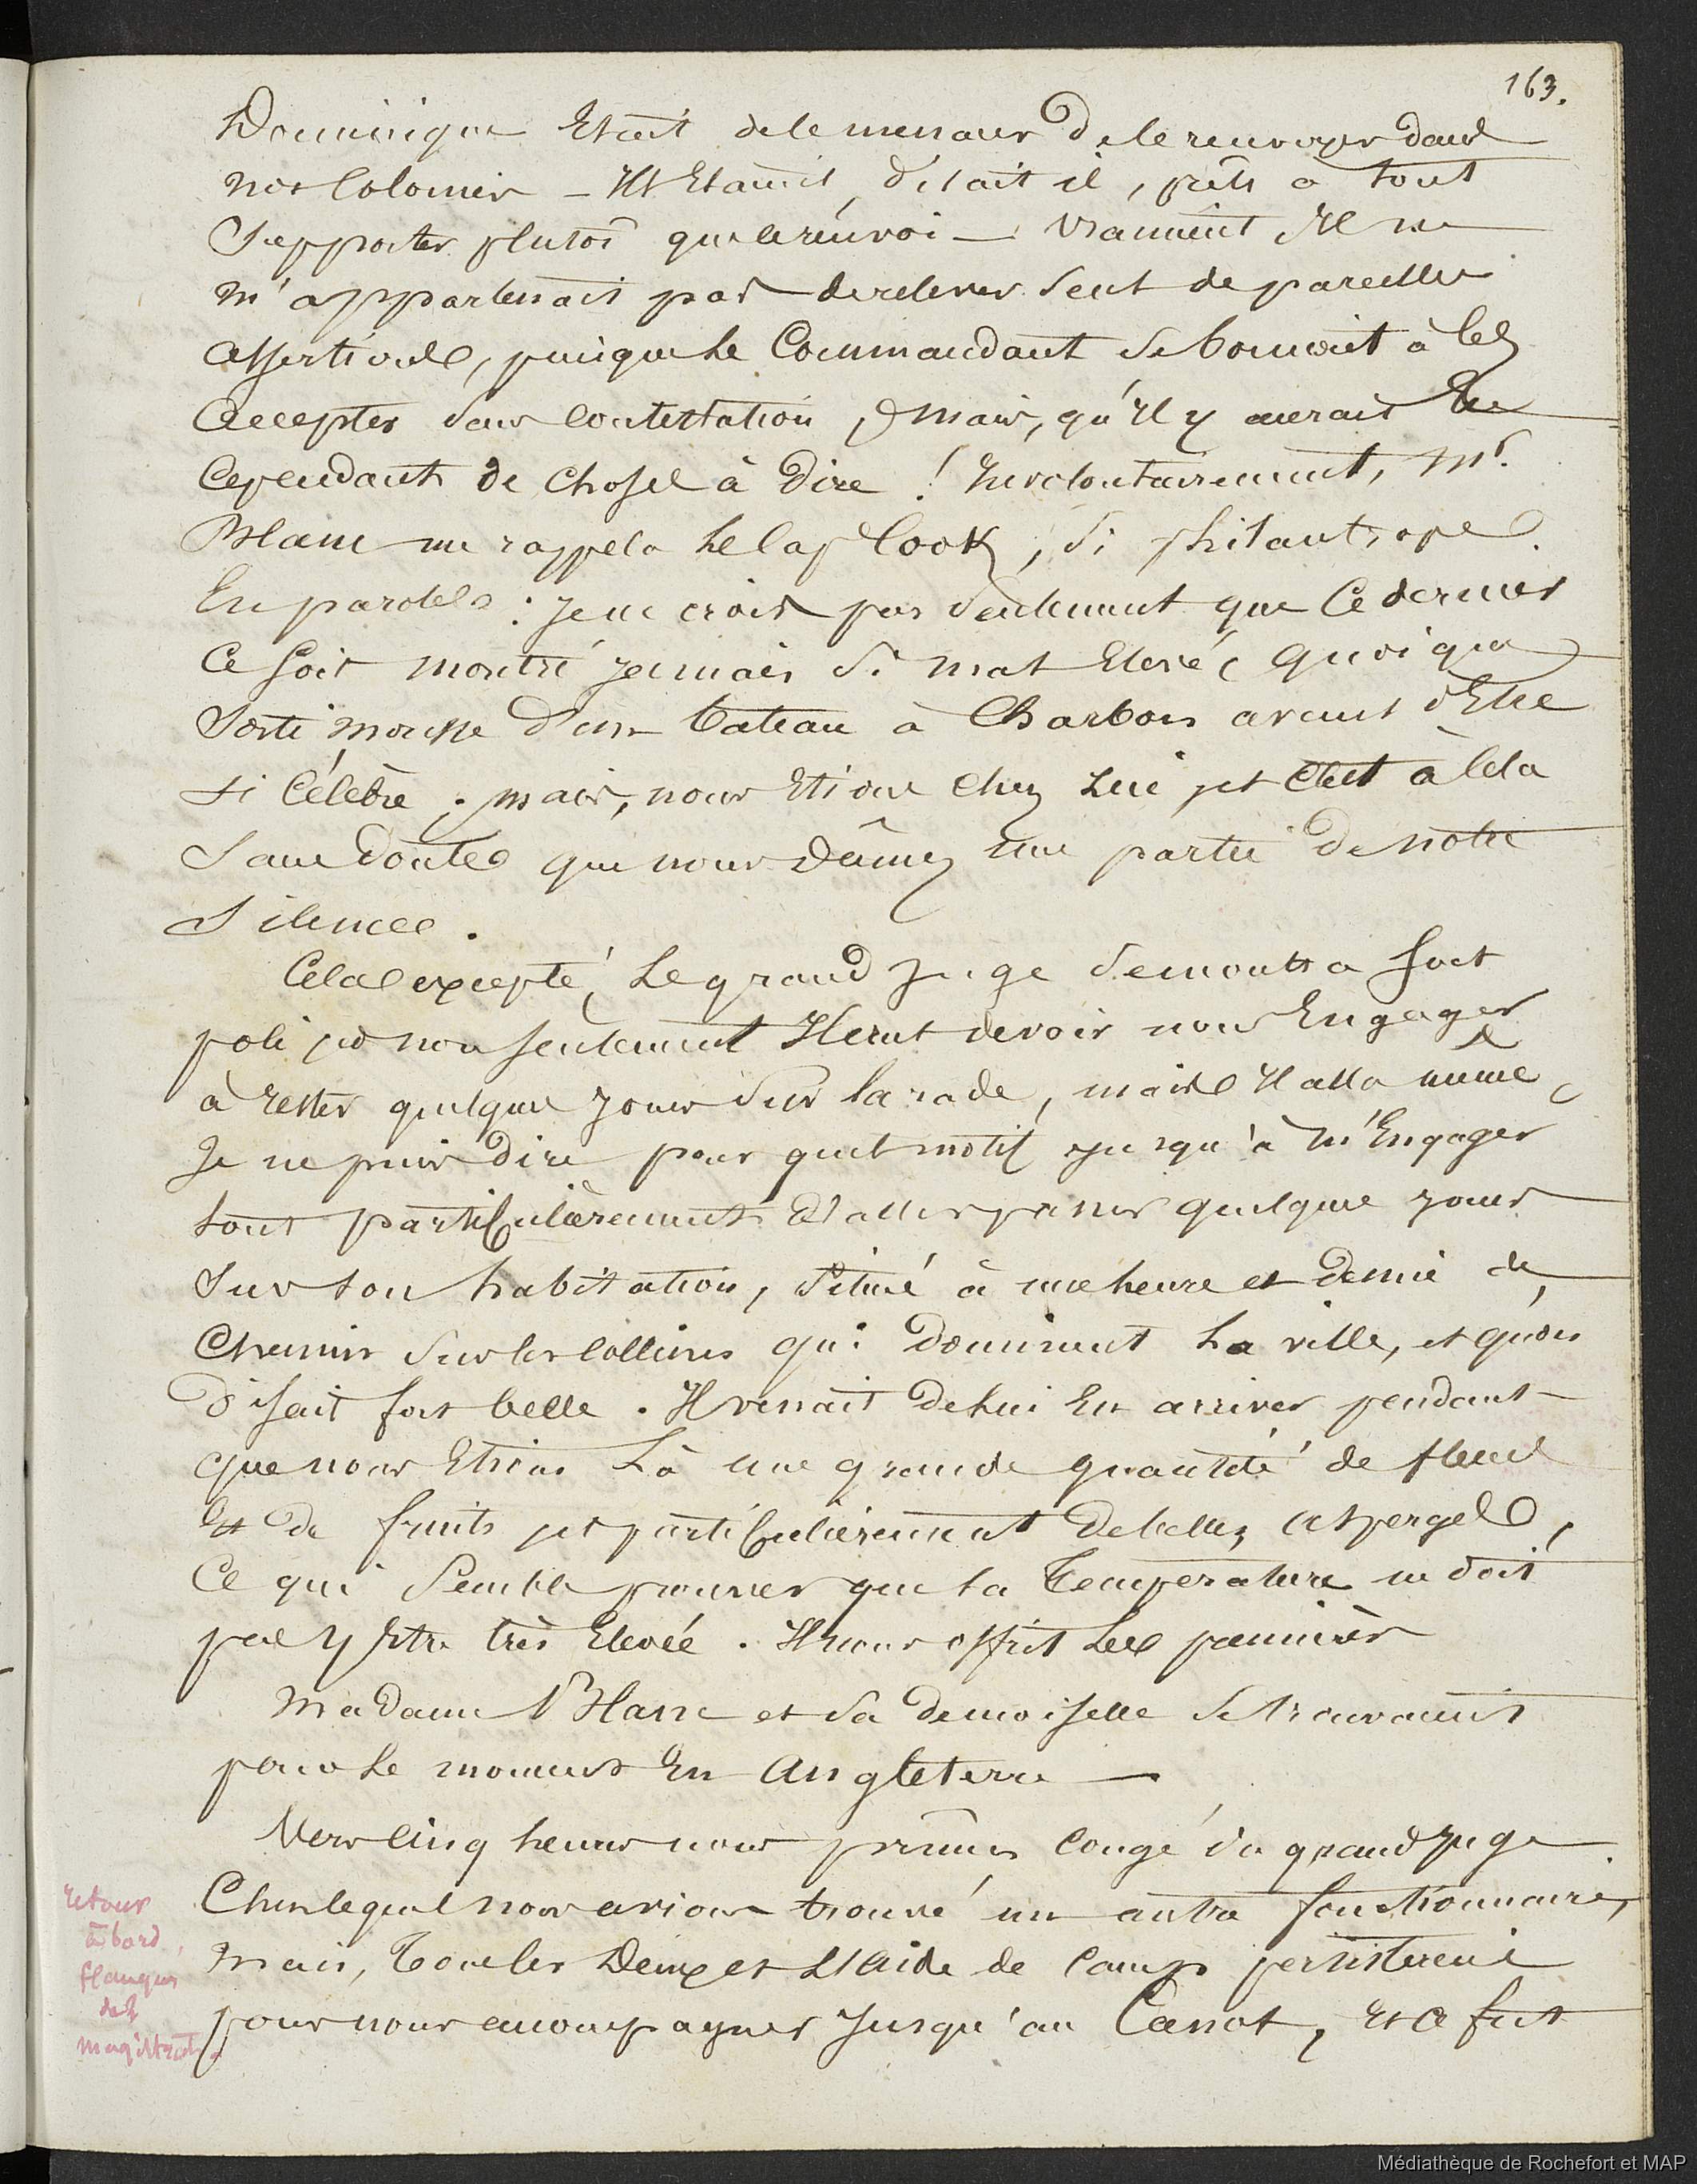 163.
Dominique Etait de le menacer de le renvoyer dans
nos Colonies — Ils Etaient, disait il, prêts a tout
Supporter plutot que le renvoi — vraiment Il ne
m'appartenait pas de relever seul de pareilles
assertions, puisque le Commandant se bornait à les
accepter sans contestation, mais, qu'Il y aurait Eu
Cependant de choses à Dire ! Involontairement, Mr.
Blanc me rappela le Cap Cook, si philantrope
En paroles : je ne crois pas seulement que Ce dernier
Ce soit montré jamais si mal Elevé, quoique
Sorti mousse d'un bateau à Charbon avant d'Etre
si Célèbre ; mais, nous Etions chez Lui et C'est à Cela
Sans doute que nous Dûmes une partie de notre
Silence.
Cela excepté, Le grand juge se montra fort
poli et non seulement Il crut devoir nous Engager
à rester quelques jours sur la rade, mais Il alla même,
Je ne puis Dire pour quel motif jusqu'à m'Engager
tout particulièrement d'aller passer quelques jours
Sur son habitation, Situé à une heure et Demie de
Chemin sur les Collines qui Dominent La ville, et qu'on
Disait fort belle. Il venait de lui En arriver pendant
que nous Etions Là une grande quantité de fleurs
Et de fruits et particulièrement de belles asperges,
Ce qui Semble prouver que la Température ne doit
pas y Etre très Elevée. Il nous offrit Les premières
Madame Blanc et sa Demoiselle se trouvaient
pour le moment En Angleterre —
Vers Cinq heures nous prîmes Congé du grand juge
Chez lequel nous avions trouvé un autre fonctionnaire,
Mais, Tous les Deux et L'Aide de Camp persisterent
pour nous accompagner Jusqu'au Canot, Et Ce fut
retour
à bord,
flanqués
des
magistrats.
Médiathèque de Rochefort et MAP